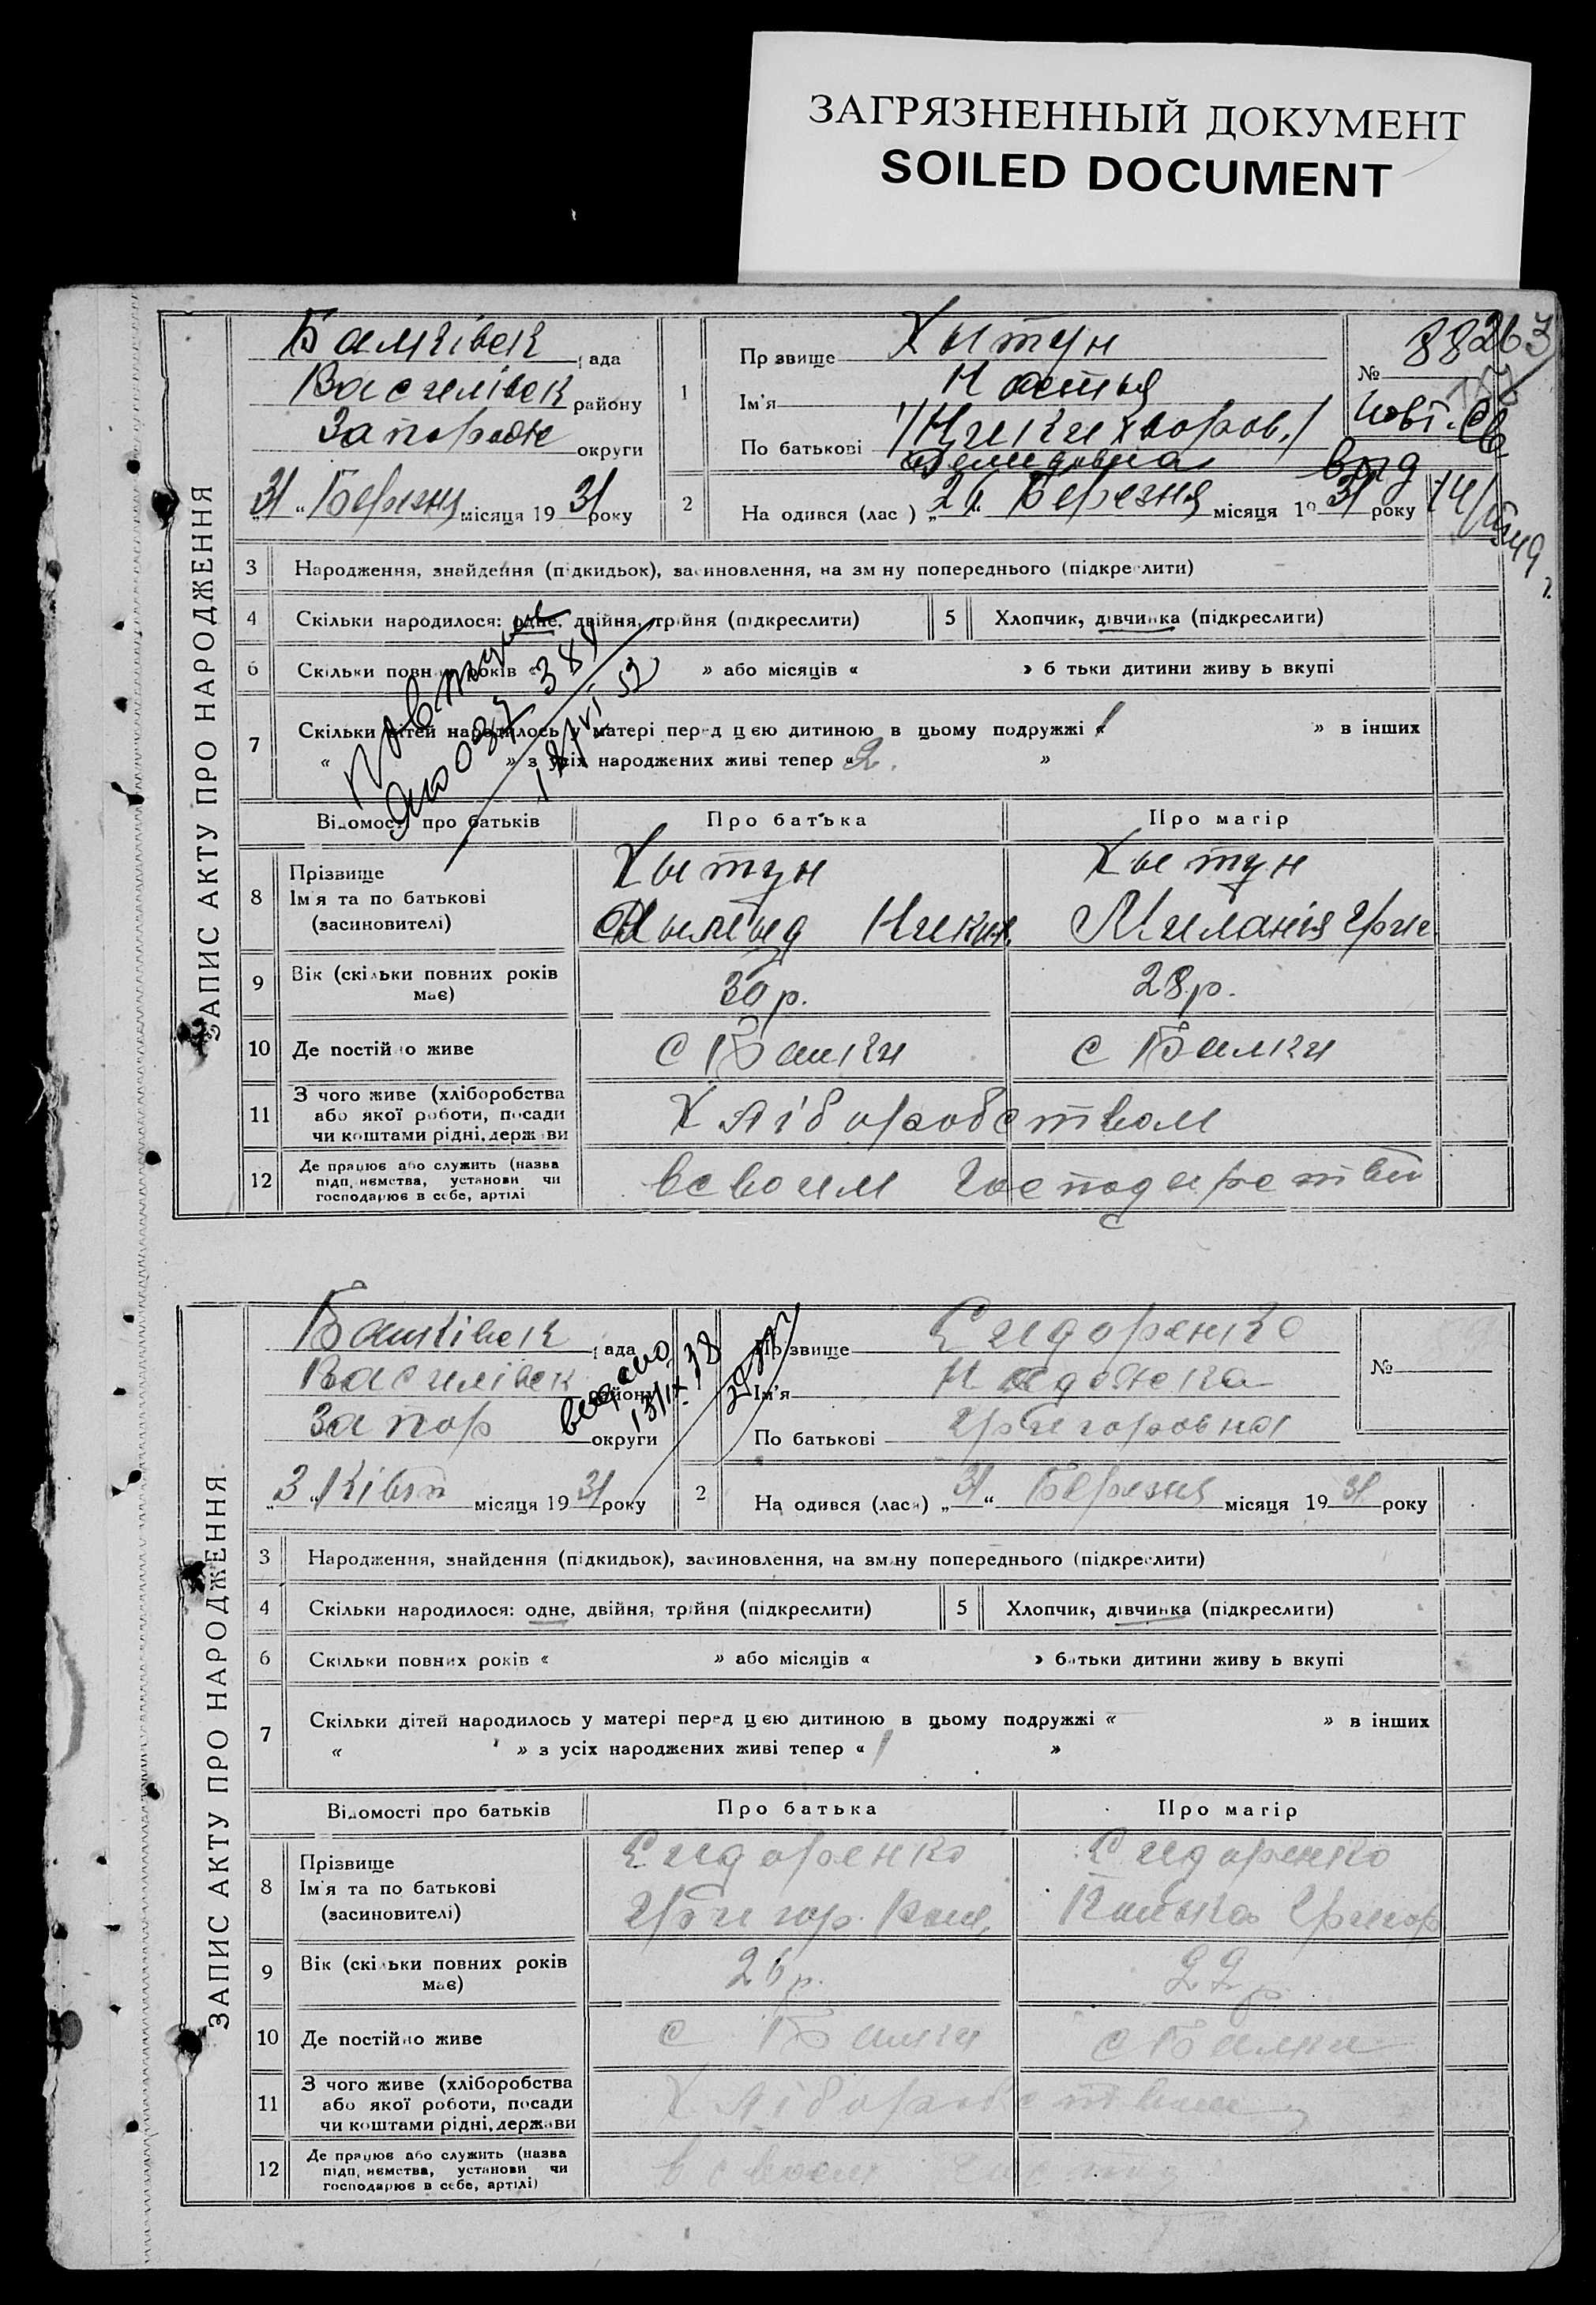 ЗАГРЯЗНЕННЫЙ ДОКУМЕНТ
SOILED DOCUMENT
ЗАПИС АКТУ ПРО НАРОДЖЕННЯ
Балківськ рада
Василівськ району
Запорізьк округи
„31“ Березня місяця 1931 року
1 Прізвище Хытун
Ім'я Настья
По батькові /Никихворов./
Демидовна
№ 88 263
2 Народився (лась) „26“ Березня місяця 1931 року
3 Народження, знайдення (підкидьок), засиновлення, на зміну попереднього (підкреслити)
4 Скільки народилося: одне, двійня, трійня (підкреслити) 5 Хлопчик, дівчинка (підкреслити)
6 Скільки повних років « » або місяців « » батьки дитини живуть вкупі
7 Скільки дітей народилось у матері перед цією дитиною в цьому подружжі « » в інших
« » з усіх народжених живі тепер «2. »
Повторне
18/VI 52
Відомості про батьків Про батька Про матір
8 Прізвище Хытун Хытун
Ім'я та по батькові
(засиновителі) Никих. Миланія Григ
9 Вік (скільки повних років має) 30 р. 28 р.
10 Де постійно живе с Балки с Балки
11 З чого живе (хліборобства
або якої роботи, посади
чи коштами рідні, держави Хліборобством
12 Де працює або служить (назва
підприємства, установи чи
господарює в себе, артілі) всвоим господарстві
ЗАПИС АКТУ ПРО НАРОДЖЕННЯ
Балківськ рада
Василівськ району
Запор округи
„3“ Квітн місяця 1931 року
видано
13/IX-38
1 Прізвище Сидоренко
Ім'я Надежка
По батькові Григоровна
№
2 Народився (лася) „31“ Березня місяця 1931 року
3 Народження, знайдення (підкидьок), засиновлення, на зміну попереднього (підкреслити)
4 Скільки народилося: одне, двійня, трійня (підкреслити) 5 Хлопчик, дівчинка (підкреслити)
6 Скільки повних років « » або місяців « » батьки дитини живуть вкупі
7 Скільки дітей народилось у матері перед цією дитиною в цьому подружжі « » в інших
« » з усіх народжених живі тепер «1 »
Відомості про батьків Про батька Про матір
8 Прізвище Сидоренко Сидоренко
Ім'я та по батькові
(засиновителі) Григор. Григор
9 Вік (скільки повних років має) 26 р. 22 р.
10 Де постійно живе с Балки с Балки
11 З чого живе (хліборобства
або якої роботи, посади
чи коштами рідні, держави Хліборобством
12 Де працює або служить (назва
підприємства, установи чи
господарює в себе, артілі) всвоем